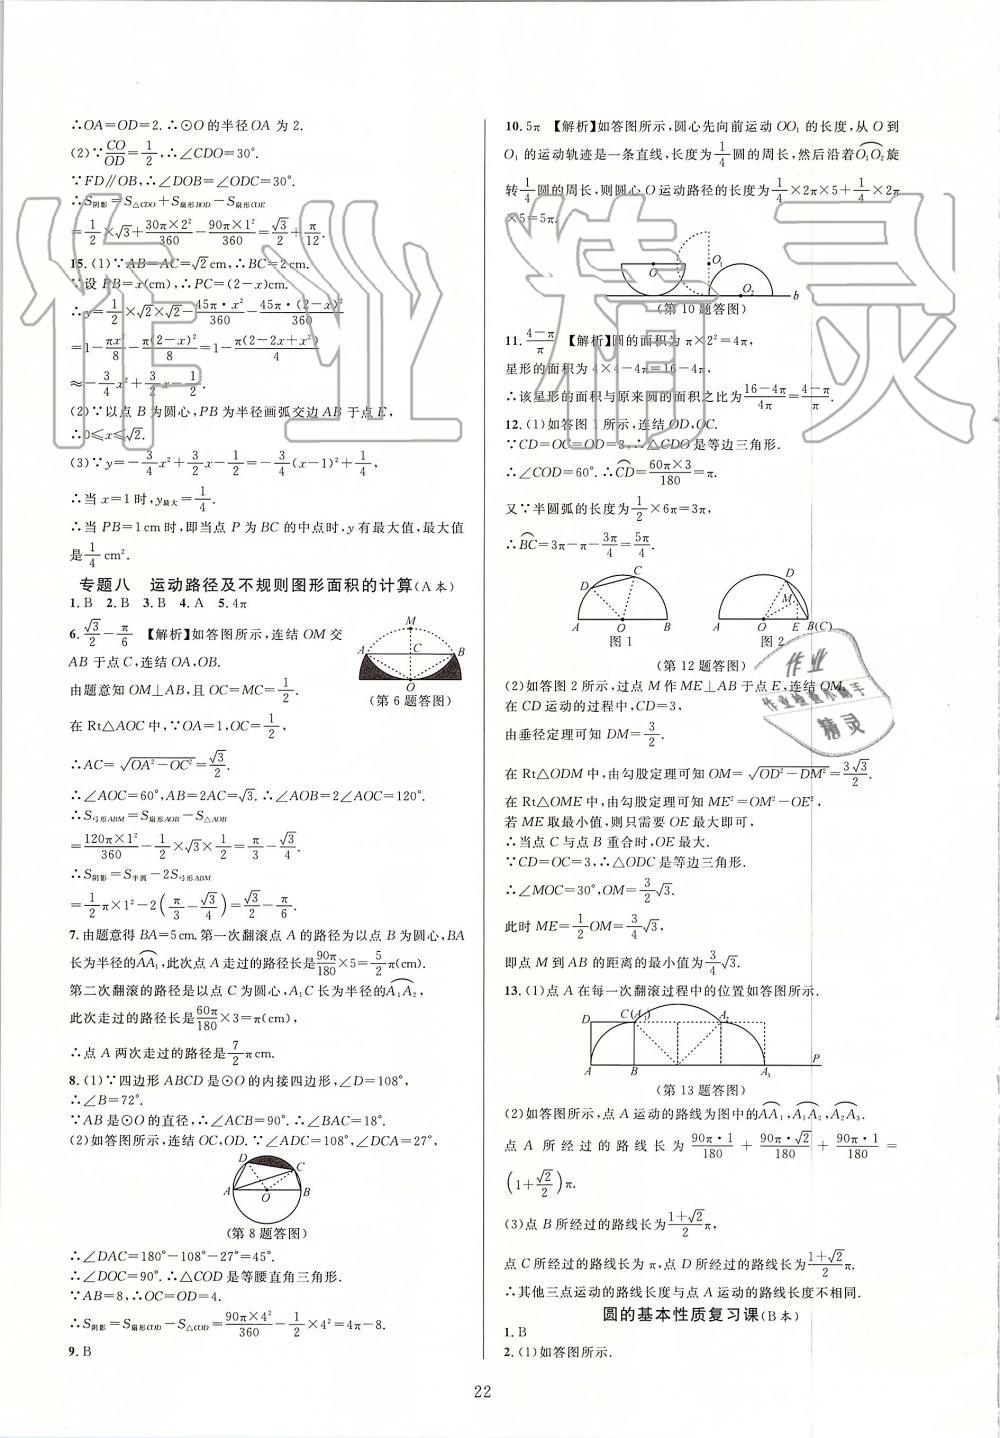 ∴OA=OD=2.∴⊙O的半径OA为2.
(2)∵CO/OD=1/2,∴∠CDO=30°.
∵FD∥OB,∴∠DOB=∠ODC=30°.
∴S阴影=S△CDO+S扇形BOD-S扇形COE
=1/2×√3+30π×2²/360-90π×1²/360=√3/2+π/12.
15.(1)∵AB=AC=√2cm,∴BC=2cm.
∵设PB=x(cm),∴PC=(2-x)cm.
∴y=1/2×√2×√2-45π·x²/360-45π·(2-x)²/360
=1-πx²/8-π(2-x)²/8=1-π(2-2x+x²)/4
≈-3/4x²+3/2x-1/2.
(2)∵以点B为圆心,PB为半径画弧交边AB于点E,
∴0≤x≤√2.
(3)∵y=-3/4x²+3/2x-1/2=-3/4(x-1)²+1/4,
∴当x=1时,y最大=1/4.
∴当PB=1cm时,即当点P为BC的中点时,y有最大值,最大值
是1/4cm².
专题八 运动路径及不规则图形面积的计算(A本)
1.B 2.B 3.B 4.A 5.4π
6.√3/2-π/6 【解析】如答图所示,连结OM交
AB于点C,连结OA,OB.
由题意知OM⊥AB,且OC=MC=1/2.
在Rt△AOC中,∵OA=1,OC=1/2,
M
A C B
O
(第6题答图)
∴AC=√(OA²-OC²)=√3/2.
∴∠AOC=60°,AB=2AC=√3.∴∠AOB=2∠AOC=120°.
∴S弓形ABM=S扇形AOB-S△AOB
=120π×1²/360-1/2×√3×1/2=π/3-√3/4.
∴S阴影=S半圆-2S弓形ABM
=1/2π×1²-2(π/3-√3/4)=√3/2-π/6.
7.由题意得BA=5cm.第一次翻滚点A的路径为以点B为圆心,BA
长为半径的AA₁,此次点A走过的路径长是90π/180×5=5/2π(cm).
第二次翻滚的路径是以点C为圆心,A₁C长为半径的A₁A₂,
此次走过的路径长是60π/180×3=π(cm),
∴点A两次走过的路径是7/2πcm.
8.(1)∵四边形ABCD是⊙O的内接四边形,∠D=108°,
∴∠B=72°.
∵AB是⊙O的直径,∴∠ACB=90°.∴∠BAC=18°.
(2)如答图所示,连结OC,OD.∵∠ADC=108°,∠DCA=27°,
D C
A O B
(第8题答图)
∴∠DAC=180°-108°-27°=45°.
∴∠DOC=90°.∴△COD是等腰直角三角形.
∵AB=8,∴OC=OD=4.
∴S阴影=S扇形COD-S△COD=90π×4²/360-1/2×4²=4π-8.
9.B
10.5π 【解析】如答图所示,圆心先向前运动OO₁的长度,从O到
O₁的运动轨迹是一条直线,长度为1/4圆的周长,然后沿着O₁O₂旋
转1/4圆的周长,则圆心O运动路径的长度为1/4×2π×5+1/4×2π
×5=5π.
O O₁ O₂ b
(第10题答图)
11.(4-π)/π 【解析】圆的面积为π×2²=4π,
星形的面积为4×4-4π=16-4π,
∴该星形的面积与原来圆的面积之比为(16-4π)/4π=(4-π)/π.
12.(1)如答图1所示,连结OD,OC.
∵CD=OC=OD=3,∴△CDO是等边三角形.
∴∠COD=60°.∴CD=60π×3/180=π.
又∵半圆弧的长度为1/2×6π=3π,
∴BC=3π-π-3π/4=5π/4.
D C
A O B
图1
D
M
A O E B(C)
图2
(第12题答图)
(2)如答图2所示,过点M作ME⊥AB于点E,连结OM.
在CD运动的过程中,CD=3,
由垂径定理可知DM=3/2.
在Rt△ODM中,由勾股定理可知OM=√(OD²-DM²)=3√3/2.
在Rt△OME中,由勾股定理可知ME²=OM²-OE²,
若ME取最小值,则只需要OE最大即可,
∴当点C与点B重合时,OE最大.
∵CD=OC=3,∴△ODC是等边三角形.
∴∠MOC=30°,OM=3/2√3.
此时ME=1/2OM=3/4√3,
即点M到AB的距离的最小值为3/4√3.
13.(1)点A在每一次翻滚过程中的位置如答图所示.
D C(A₁) A₂
A B A₃ P
(第13题答图)
(2)如答图所示,点A运动的路线为图中的AA₁,A₁A₂,A₂A₃.
点A所经过的路线长为90π·1/180+90π·√2/180+90π·1/180=
(1+√2/2)π.
(3)点B所经过的路线长为(1+√2)/2π,
点C所经过的路线长为π,点D所经过的路线长为(1+√2)/2π.
∴其他三点运动的路线长度与点A运动的路线长度不相同.
圆的基本性质复习课(B本)
1.B
2.(1)如答图所示.
22
作业精灵
作业
作业检查小帮手
精灵